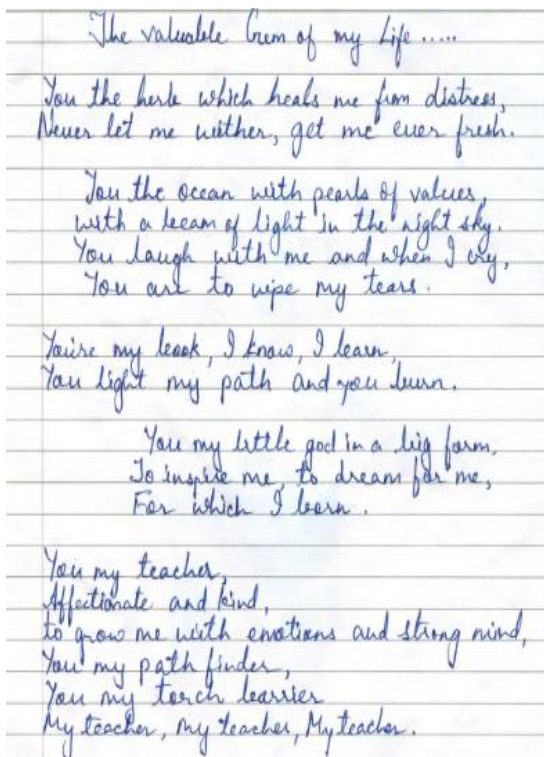 The valuable Gem of my Life.....
You the herb which heals me from distress,
Never let me wither, get me ever fresh.
You the ocean with pearls of values,
with a beam of light in the night sky.
You laugh with me and when I cry,
You are to wipe my tears.
You're my book, I know, I learn,
You light my path and you burn.
You my little god in a big form,
To inspire me, to dream for me,
For which I born.
You my teacher,
Affectionate and kind,
to grow me with emotions and strong mind,
You my path finder,
You my torch bearrier
My teacher, my teacher, My teacher.